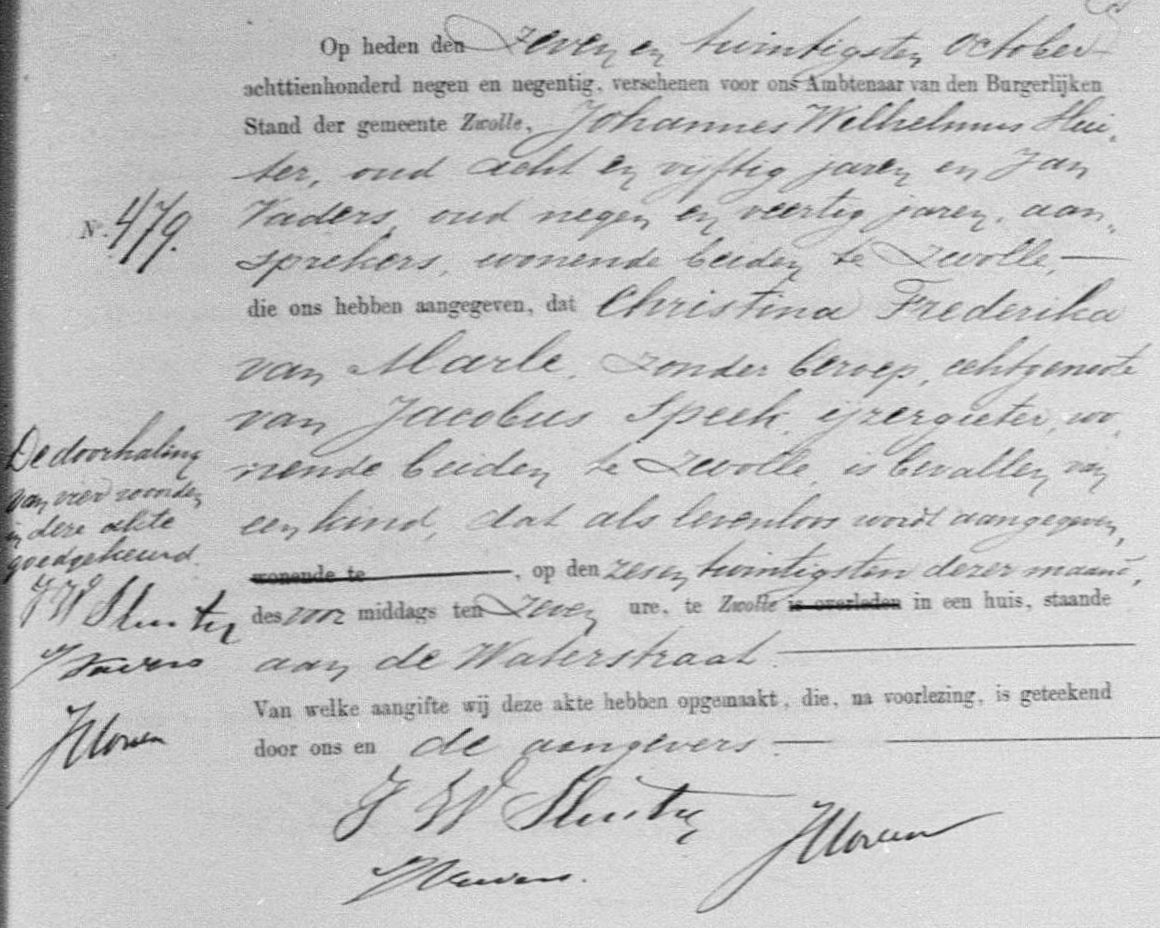 Op heden den zeven en twintigsten October
achttienhonderd negen en negentig, verschenen voor ons Ambtenaar van den Burgerlijken
Stand der gemeente Zwolle, Johannes Wilhelmus Slui-
ter, oud acht en vijftig jaren en Jan
Vaders, oud negen en veertig jaren, aan-
sprekers, wonende beiden te Zwolle,
die ons hebben aangegeven, dat Christina Frederika
van Marle, zonder beroep, echtgenoote
van Jacobus Speek, ijzergieter, wo-
nende beiden te Zwolle, is bevallen van
een kind, dat als levenloos wordt aangegeven,
wonende te, op den zes en twintigsten dezer maand,
des voor middags ten zeven ure, te Zwolle is overleden in een huis, staande
aan de Waterstraat.
Van welke aangifte wij deze akte hebben opgemaakt, die, na voorlezing, is geteekend
door ons en de aangevers.
J W Sluiter
No. 479.
De doorhaling
van vier woorden
in deze akte
goedgekeurd.
J W Sluiter